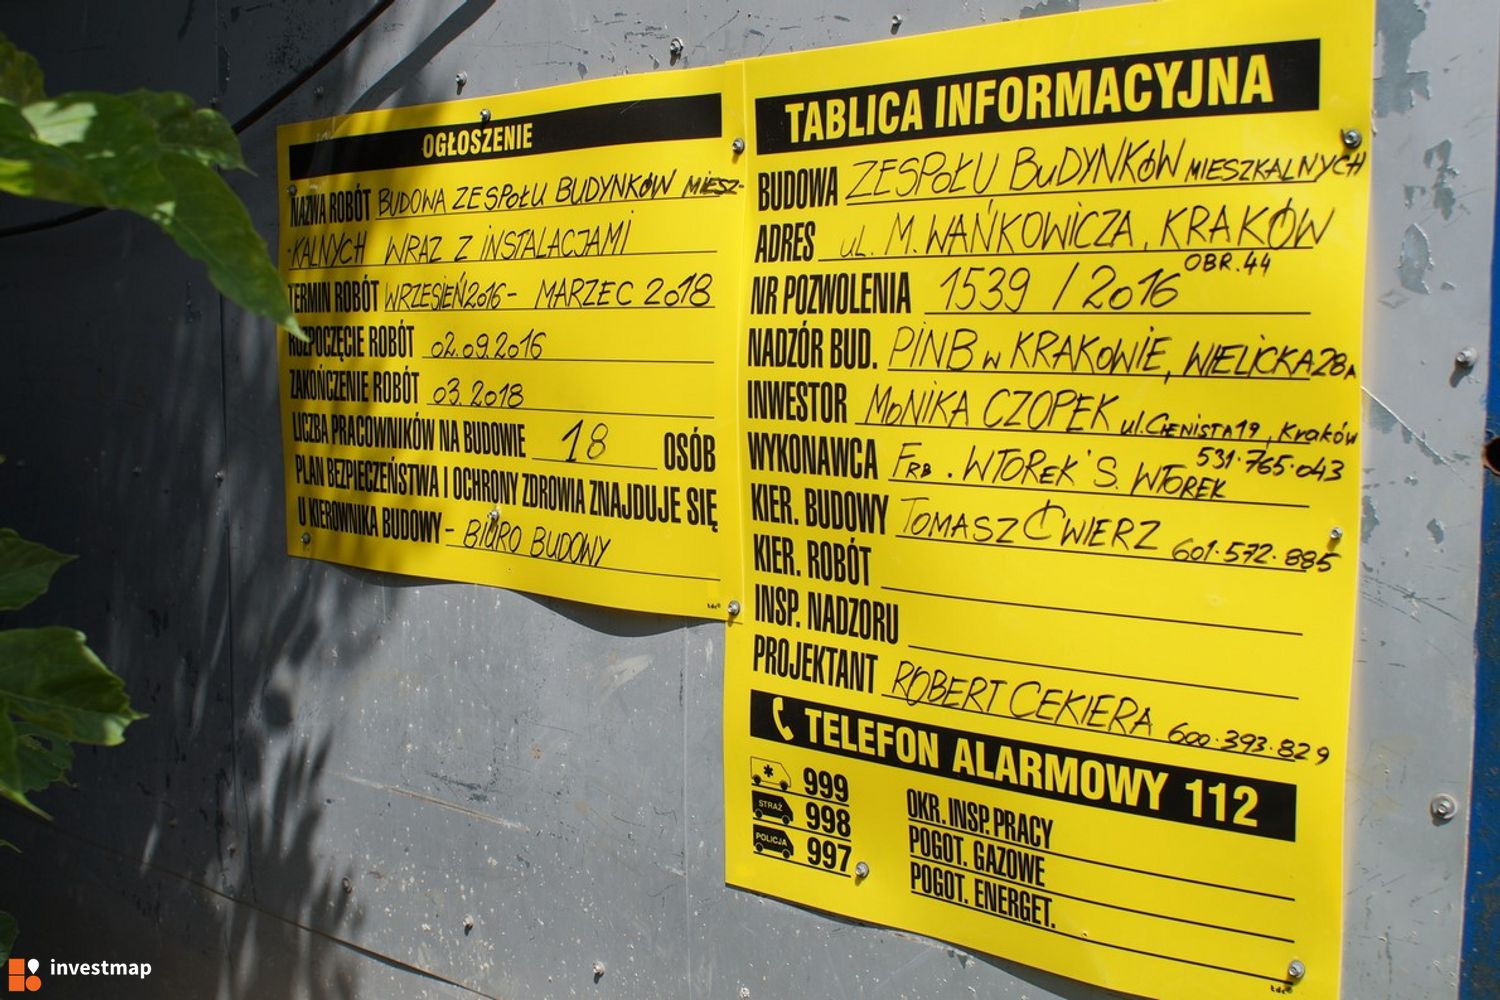 OGŁOSZENIE
NAZWA ROBÓT BUDOWA ZESPOŁU BUDYNKÓW MIESZ-
-KALNYCH WRAZ Z INSTALACJAMI
TERMIN ROBÓT WRZESIEŃ 2016 - MARZEC 2018
ROZPOCZĘCIE ROBÓT 02.09.2016
ZAKOŃCZENIE ROBÓT 03.2018
LICZBA PRACOWNIKÓW NA BUDOWIE 18 OSÓB
PLAN BEZPIECZEŃSTWA I OCHRONY ZDROWIA ZNAJDUJE SIĘ
U KIEROWNIKA BUDOWY - BIURO BUDOWY
tdc®
TABLICA INFORMACYJNA
BUDOWA ZESPOŁU BUDYNKÓW MIESZKALNYCH
ADRES ul. M. WAŃKOWICZA, KRAKÓW
OBR. 44
NR POZWOLENIA 1539 / 2016
NADZÓR BUD. PINB w KRAKOWIE, WIELICKA 28A
INWESTOR MONIKA CZOPEK ul. CIENISTA 19, Kraków
531·765·043
WYKONAWCA FRB. WTOREK S. WTOREK
KIER. BUDOWY TOMASZ ĆWIERZ 601·572·885
KIER. ROBÓT
INSP. NADZORU
PROJEKTANT ROBERT CEKIERA 600·393·829
TELEFON ALARMOWY 112
999
STRAŻ 998
POLICJA 997
OKR. INSP. PRACY
POGOT. GAZOWE
POGOT. ENERGET.
tdc®
investmap